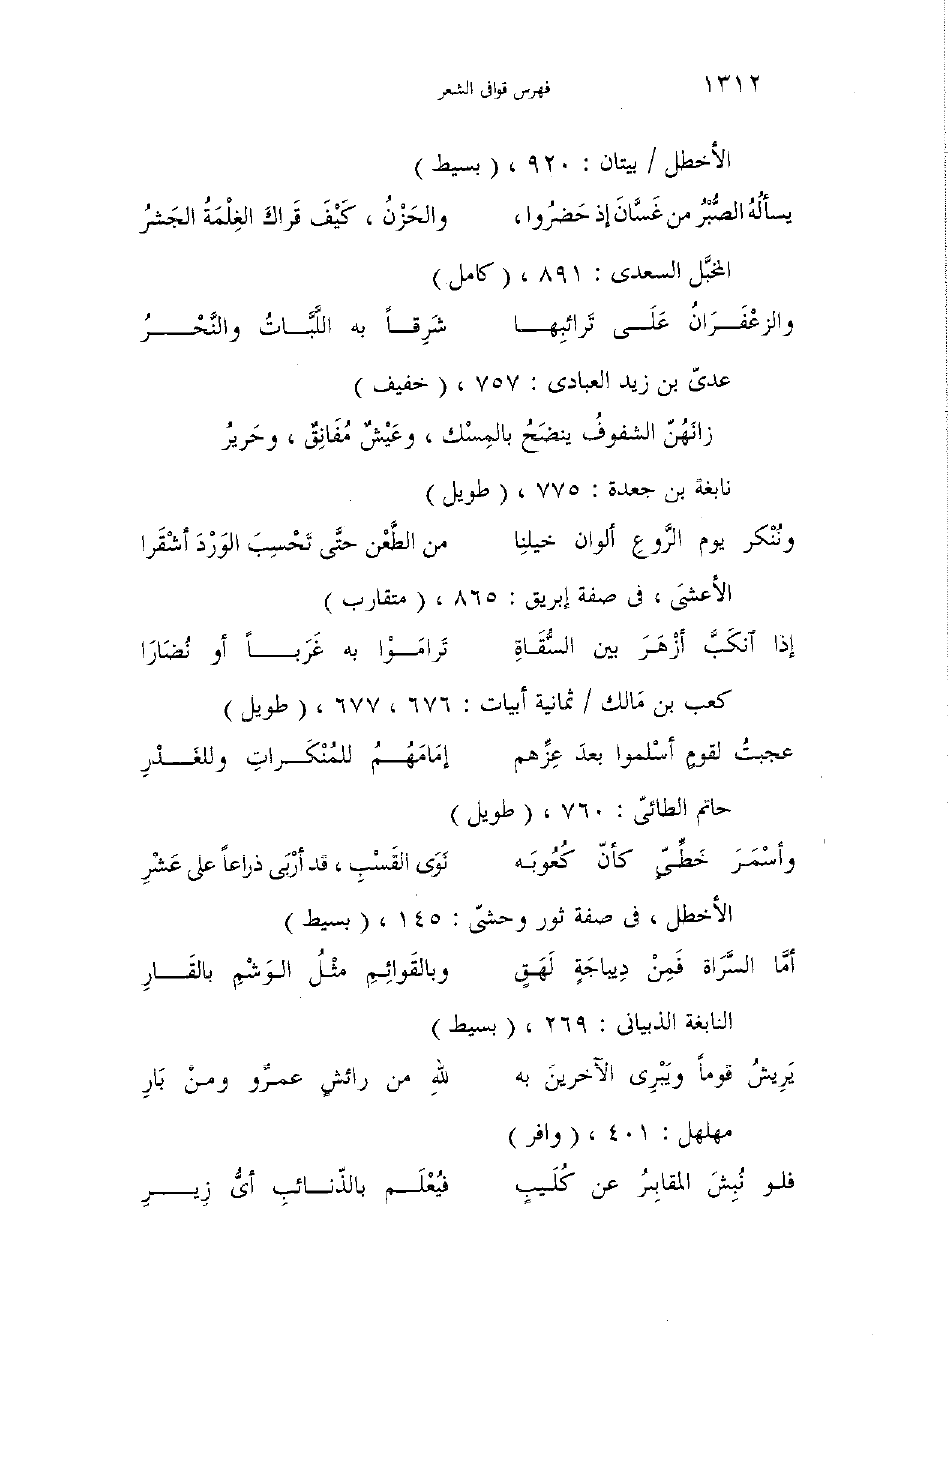 ١٣١٢ فهرس قوافى الشعر
الأخطل / بيتان : ٩٢٠ ، ( بسيط )
يسألُهُ الصُّبْرُ من غَسَّانَ إذ حَضَرُوا ، والحَزْنُ ، كَيْفَ قَراكَ الغِلْمَةُ الجَشَرُ
المخبَّل السعدى : ٨٩١ ، ( كامل )
والزعْفَـرَانُ عَلَـى تَرائِبِهـا شَرِقـاً به اللَّبَّـاتُ والنَّحْـرُ
عدىّ بن زيد العبادى : ٧٥٧ ، ( خفيف )
زانَهُنّ الشفوفُ ينضَحُ بالمِسْك ، وعَيْشٌ مُفَانِقٌ ، وحَريرُ
نابغة بن جعدة : ٧٧٥ ، ( طويل )
ونُنْكر يوم الرَّوع ألوان خيلنا من الطَّعْن حتَّى تَحْسِبَ الوَرْدَ أشْقَرا
الأعشَى ، فى صفة إبريق : ٨٦٥ ، ( متقارب )
إذا آنكَبَّ أزْهَـرَ بين السُّقَـاةِ تَرامَـوْا به غَرَبـاً أو نُضَارَا
كعب بن مَالك / ثمانية أبيات : ٦٧٦ ، ٦٧٧ ، ( طويل )
عجبتُ لقومٍ أسْلموا بعدَ عِزِّهم إمَامَهُـمُ للمُنْكَـراتِ وللغَـدْرِ
حاتم الطائىّ : ٧٦٠ ، ( طويل )
وأسْمَرَ خَطِّىّ كأنّ كُعُوبَـه نَوَى القَسْبِ ، قد أرْبَى ذراعاً على عَشْرِ
الأخطل ، فى صفة ثور وحشىّ : ١٤٥ ، ( بسيط )
أمَّا السَّرَاة فَمِنْ دِيباجَةٍ لَهَـقٍ وبالقَوائِـمِ مثْلُ الـوَشْمِ بالقَـارِ
النابغة الذبيانى : ٢٦٩ ، ( بسيط )
يَرِيشُ قوماً ويَبْرِى الآخرينَ به للهِ من رائشٍ عمرٍو ومـنْ بَارِ
مهلهل : ٤٠١ ، ( وافر )
فلـو نُبِشَ المقابِرُ عن كُلَـيبٍ فيُعْلَـم بالذّنـائبِ أىُّ زِيـرِ